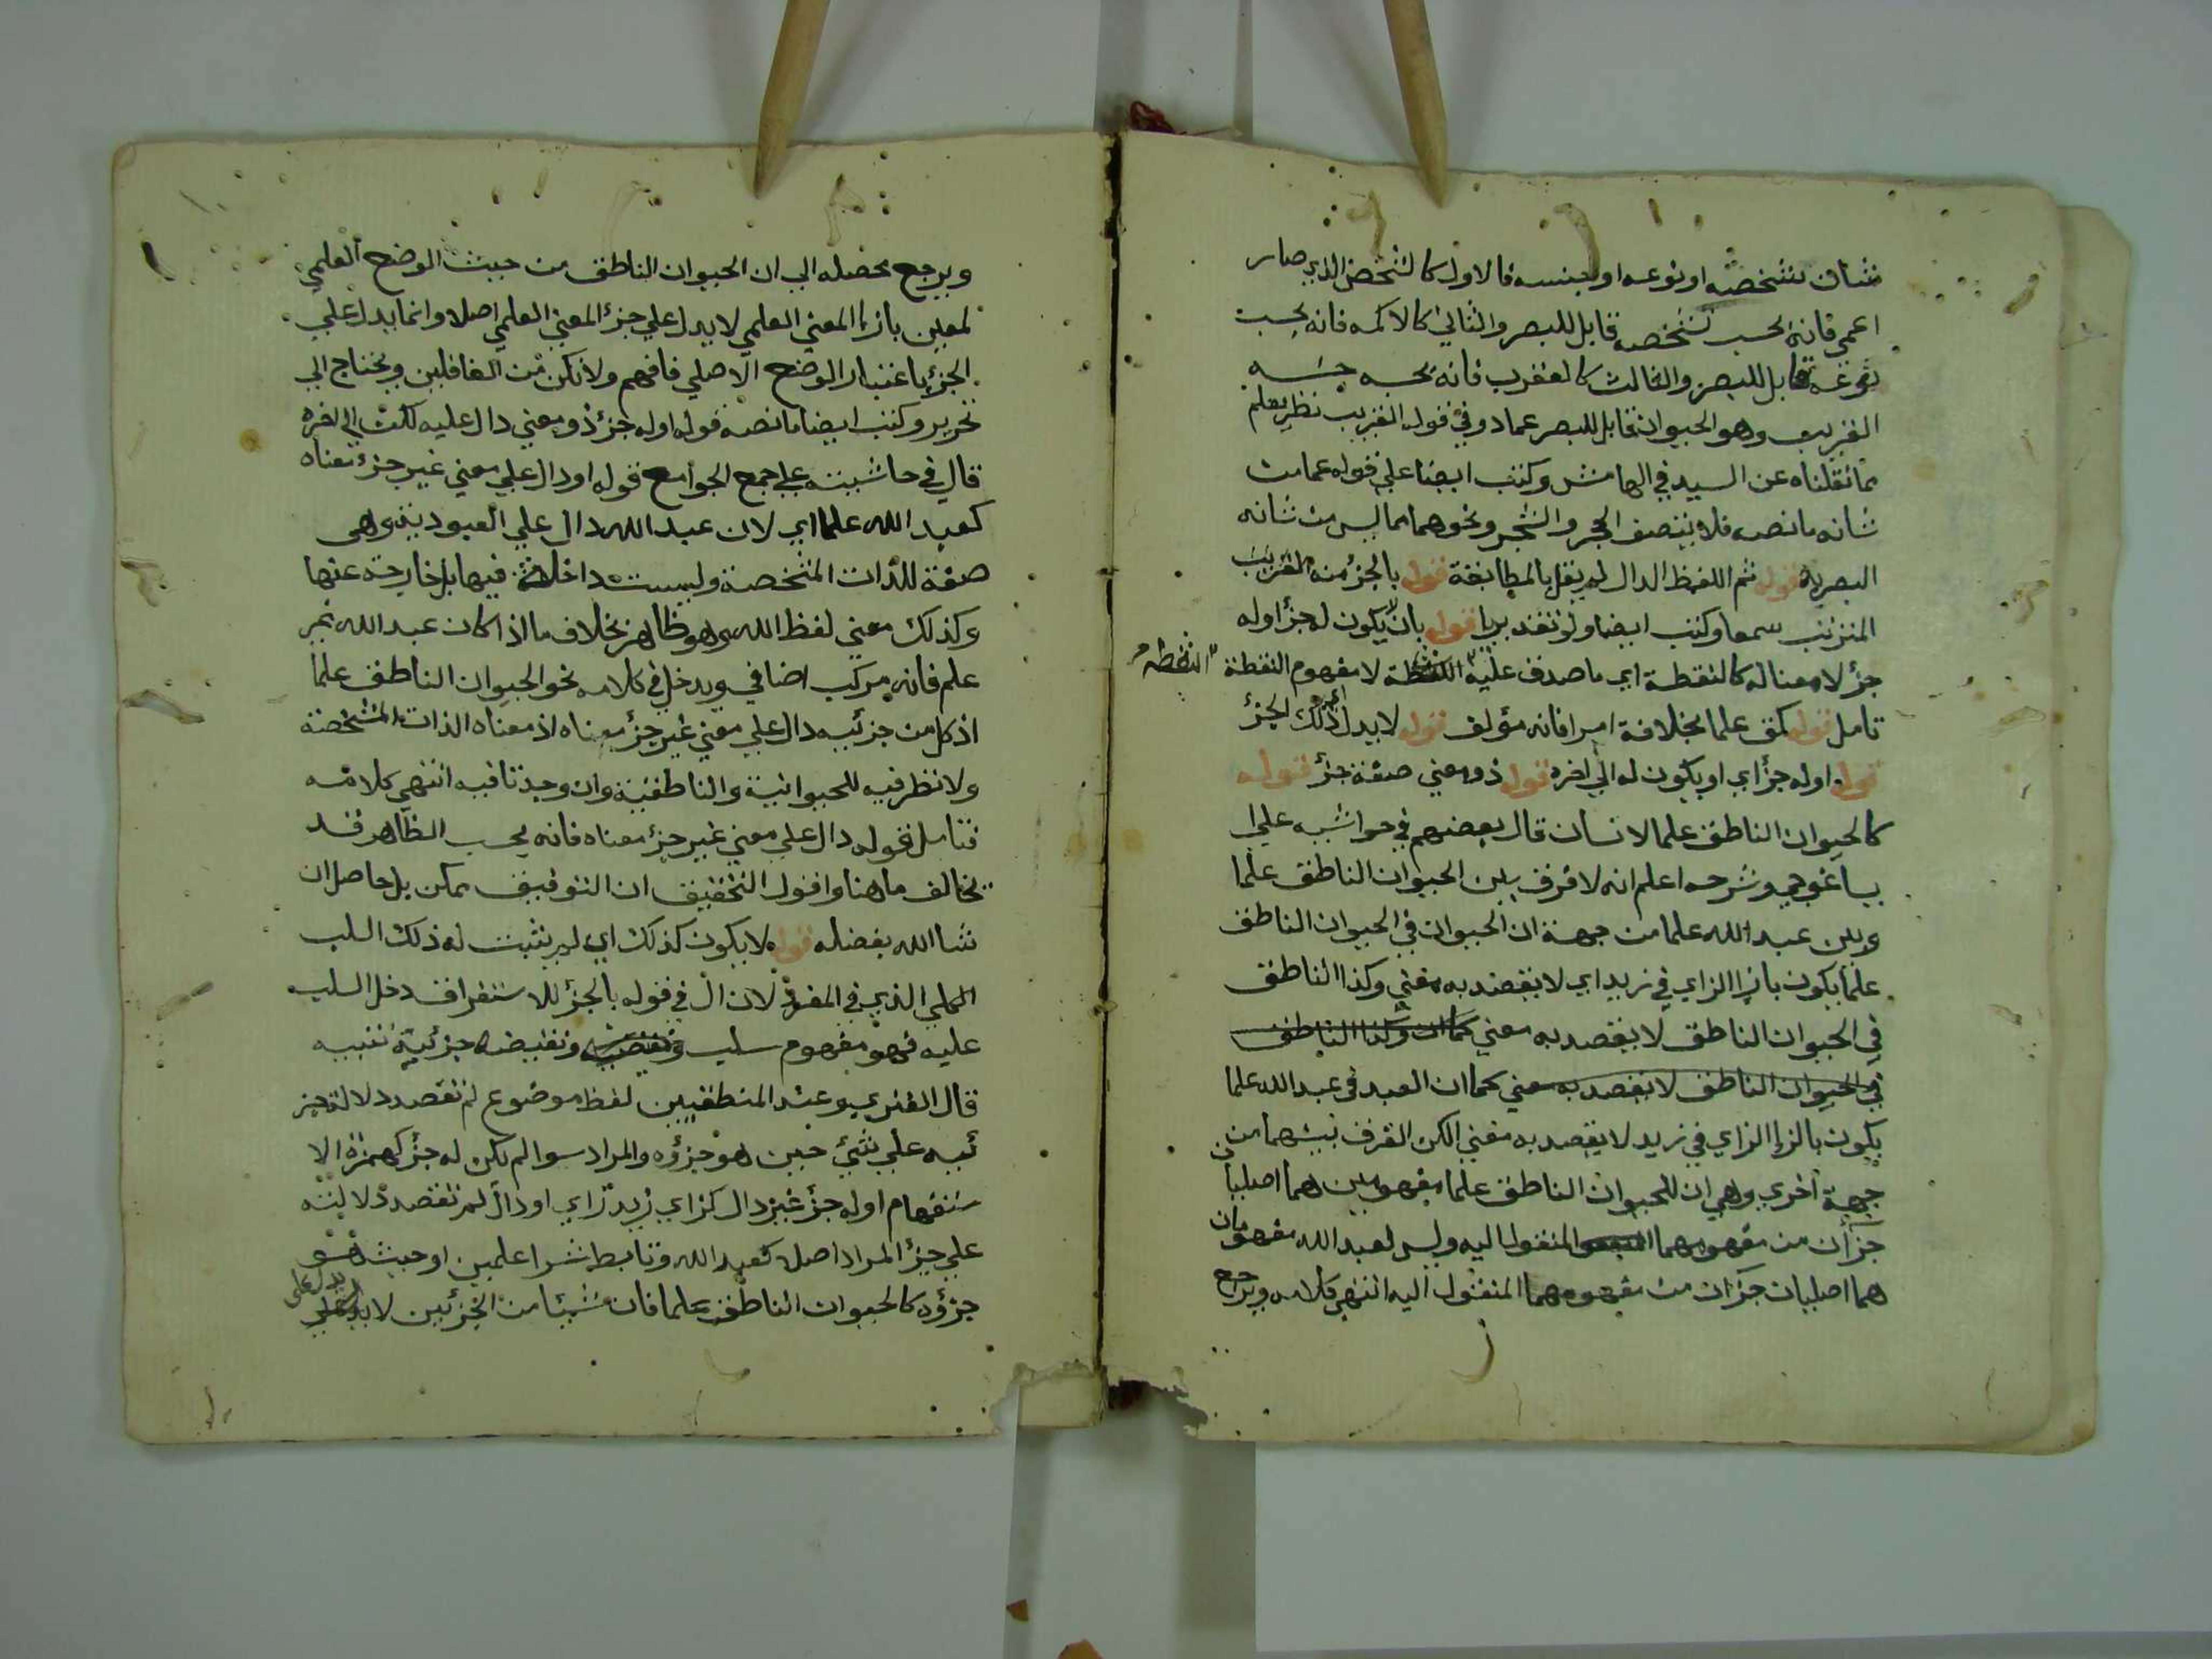 شان شخصه او نوعه او جنسه فالاول كالشخص الذي صار
اعمي فانه بحسب شخصه قابل للبصر والثاني كالاكمه فانه بحسب
نوعه قابل للبصر والثالث كالعقرب فانه بحسب جنسه
القريب وهو الحيوان قابل للبصر عماد وفي قوله القريب نظر يعلم
مما نقلناه عن السيد في الهامش وكتب ايضا علي قوله عما من
شانه ما نصه فلا يتصف الحجر والشجر ونحوهما مما ليس من شانه
البصر به قوله ثم اللفظ الدال لم يقل بالمطابقة قوله بالجزء منه القريب
المترتب سمعا وكتب ايضا ولو تقديريا قوله بان يكون له جزا وله
جزء لا معنا له كالنقطة اي ما صدق عليه لا مفهوم النقطة
النقطة
تامل قوله كق علما بخلافه امرا فانه مؤلف قوله لا يدل ذلك الجزء
قوله اوله جزء اي او يكون له الي اخره قوله ذو معني صفة جزء قوله
كالحيوان الناطق علما لانسان قال بعضهم في حواشيه علي ا
يساغوجي وشرحه اعلم انه لا فرق بين الحيوان الناطق علما
وبين عبد الله علما من جهة ان الحيوان في الحيوان الناطق
علما يكون بازا الزاي في زيد اي لا يقصد به معني وكذا الناطق
في الحيوان الناطق لا يقصد به معني كما ان وكذا الناطق
في الحيوان الناطق لا يقصد به معني كما ان العبد في عبد الله علما
يكون بالزا الزاي في زيد لا يقصد به معني لكن الفرق بينهما من
جهة اخري وهي ان للحيوان الناطق علما مفهومين هما اصليا
جزآن من مفهومهما المنقول اليه وليس لعبد الله مفهومان
هما اصليان جزآن من مفهومهما المنقول اليه انتهي كلامه ويرجع
ويرجع محصله الي ان الحيوان الناطق من حيث الوضع العلمي
لمعين بازا المعني العلمي لا يدل علي جزء المعني العلمي اصلا وانما يدل علي
الجزء باعتبار الوضع الاصلي فافهم ولا تكن من الغافلين ويحتاج الي
تحرير وكتب ايضا ما نصه قوله اوله جزء ذو معني دال عليه لكن الي اخره
قال في حاشيته علي جمع الجوامع قوله او دال علي معني غير جزء معناه
كعبد الله علما اي لان عبد الله دال علي العبودية وهي
صفة للذات المشخصة وليست داخلة فيها بل خارجة عنها
وكذلك معني لفظ الله وهو ظاهر بخلاف ما اذا كان عبد الله غير
علم فانه مركب اضافي ويدخل في كلامه نحو الحيوان الناطق علما
اذ كل من جزئيه دال علي معني غير جزء معناه اذ معناه الذات المشخصة
ولا نظر فيه للحيوانية والناطقية وان وجدتا فيه انتهي كلامه
فتامل قوله دال علي معني غير جزء معناه فانه بحسب الظاهر قد
يخالف ما هنا واقول التحقيق ان التوفيق ممكن بل حاصل ان
شا الله بفضله قوله لا يكون كذلك اي لم يثبت له ذلك السلب
الكلي الذي في المفرد لان ال في قوله بالجزء للاستغراق دخل السلب
عليه فهو مفهوم سلب ونقيضه جزئية تنبيه
قال الفنري يو عند المنطقيين لفظ موضوع لم تقصد دلالة جز
ئيه علي شيء حين هو جزؤه والمراد سوا لم يكن له جزء كهمزة الا
ستفهام اوله جزء غير دال كزاي زيد زاي او دال لم تقصد دلالته
علي جزء المراد اصلا كعبد الله وتابط شرا علمين او حيث هو
جزؤه كالحيوان الناطق علما فان شيئا من الجزئين لا يدل علي